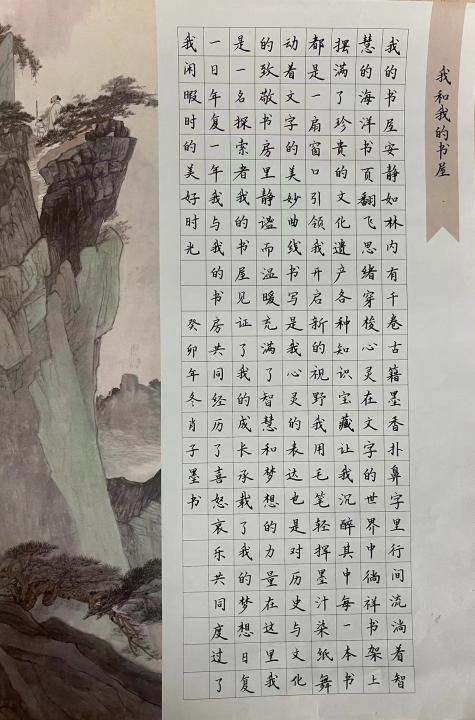 我和我的书屋
我的书屋安静如林内有千卷古籍墨香扑鼻字里行间流淌着智
慧的海洋书页翻飞思绪穿梭心灵在文字的世界中徜祥书架上
摆满了珍贵的文化遗产各种知识宝藏让我沉醉其中每一本书
都是一扇窗口引领我开启新的视野我用毛笔轻挥墨汁染纸舞
动着文字的美妙曲线书写是我心灵的表达也是对历史与文化
的致敬书房里静谧而温暖充满了智慧和梦想的力量在这里我
是一名探索者我的书屋见证了我的成长承载了我的梦想日复
一日年复一年我与我的书房共同经历了喜怒哀乐共同度过了
我闲暇时的美好时光 癸卯年冬肖子墨书